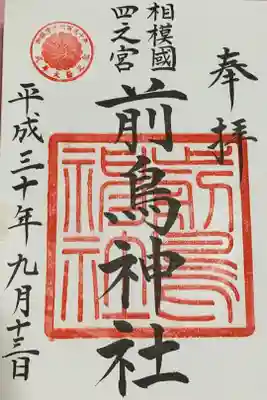 奉拝
相模國
四之宮
前鳥神社
平成三十年九月十三日
前鳥
神社